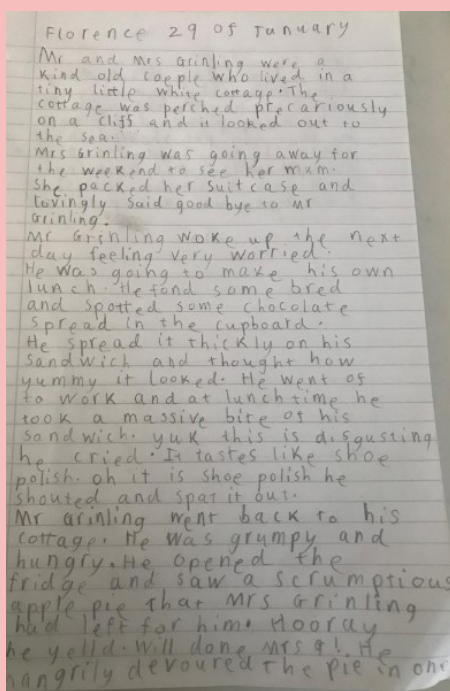 Florence 29 of January
Mr and Mrs Grinling were a
kind old coeple who lived in a
tiny little white cottage. The
cottage was perched precariously
on a cliff and it looked out to
the sea.
Mrs Grinling was going away for
the weekend to see her mum.
She packed her suitcase and
lovingly said good bye to Mr
Grinling.
Mr Grinling woke up the next
day feeling very worried.
He was going to make his own
lunch. He fond some bred
and spotted some chocolate
spread in the cupboard.
He spread it thickly on his
sandwich and thought how
yummy it looked. He went of
to work and at lunchtime he
took a massive bite of his
sandwich. yuk this is disgusting
he cried. It tastes like shoe
polish. oh it is shoe polish he
shouted and spat it out.
Mr Grinling went back to his
cottage. He was grumpy and
hungry. He opened the
fridge and saw a scrumptious
apple pie that Mrs Grinling
had left for him. Hooray
he yelld. Will done Mrs g!. He
hangrily devoured the pie in one